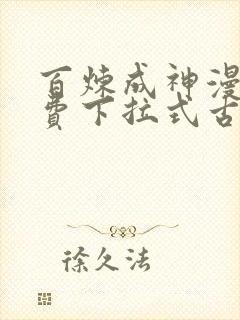 百炼成神漫
费下拉式古
徐久法